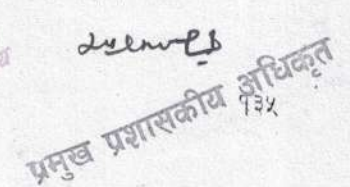 प्रमुख प्रशासकीय अधिकृत
१३५